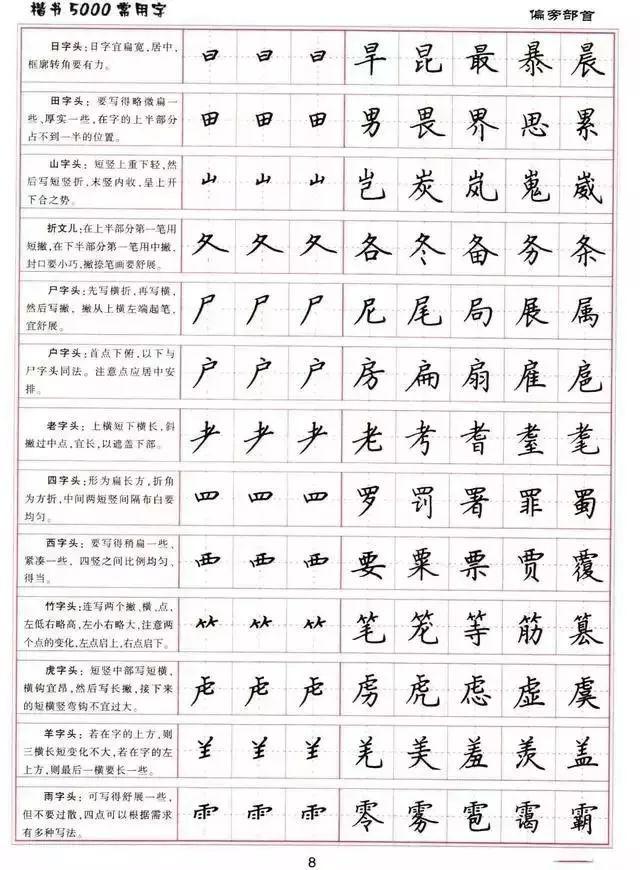 楷书5000常用字
偏旁部首
日字头：日字宜扁宽，居中，
框廓转角要有力。
曰 曰 曰 旱 昆 最 暴 晨
田字头：要写得略微扁一
些，厚实一些，在字的上半部分
占不到一半的位置。
田 田 田 男 畏 界 思 累
山字头：短竖上重下轻，然
后写短竖折，末竖内收，呈上开
下合之势。
山 山 山 岂 炭 岚 嵬 崴
折文儿：在上半部分第一笔用
短撇，在下半部分第一笔用中撇，
封口要小巧，撇捺笔画要舒展。
夂 夂 夂 各 冬 备 务 条
尸字头：先写横折，再写横，
然后写撇，撇从上横左端起笔，
宜舒展。
尸 尸 尸 尼 尾 局 展 属
户字头：首点下俯，以下与
尸字头同法。注意点应居中安
排。
户 户 户 房 扁 扇 雇 扈
老字头：上横短下横长，斜
撇过中点，宜长，以遮盖下部。
耂 耂 耂 老 考 耆 耋 耄
四字头：形为扁长方，折角
为方折，中间两短竖间隔布白要
均匀。
罒 罒 罒 罗 罚 署 罪 蜀
西字头：要写得稍扁一些，
紧凑一些，四竖之间比例均匀、
得当。
覀 覀 覀 要 粟 票 贾 覆
竹字头：连写两个撇、横、点，
左低右略高，左小右略大，注意两
个点的变化，左点启上，右点启下。
⺮ ⺮ ⺮ 笔 笼 等 筋 篡
虎字头：短竖中部写短横，
横钩宜昂，然后写长撇，接下来
的短横竖弯钩不宜过大。
虍 虍 虍 虏 虎 虑 虚 虞
羊字头：若在字的上方，则
三横长短变化不大，若在字的左
上方，则最后一横要长一些。
⺷ ⺷ ⺷ 羌 美 羞 羡 盖
雨字头：可写得舒展一些，
但不要过散，四点可以根据需求
有多种写法。
⻗ ⻗ ⻗ 零 雾 雹 霭 霸
8